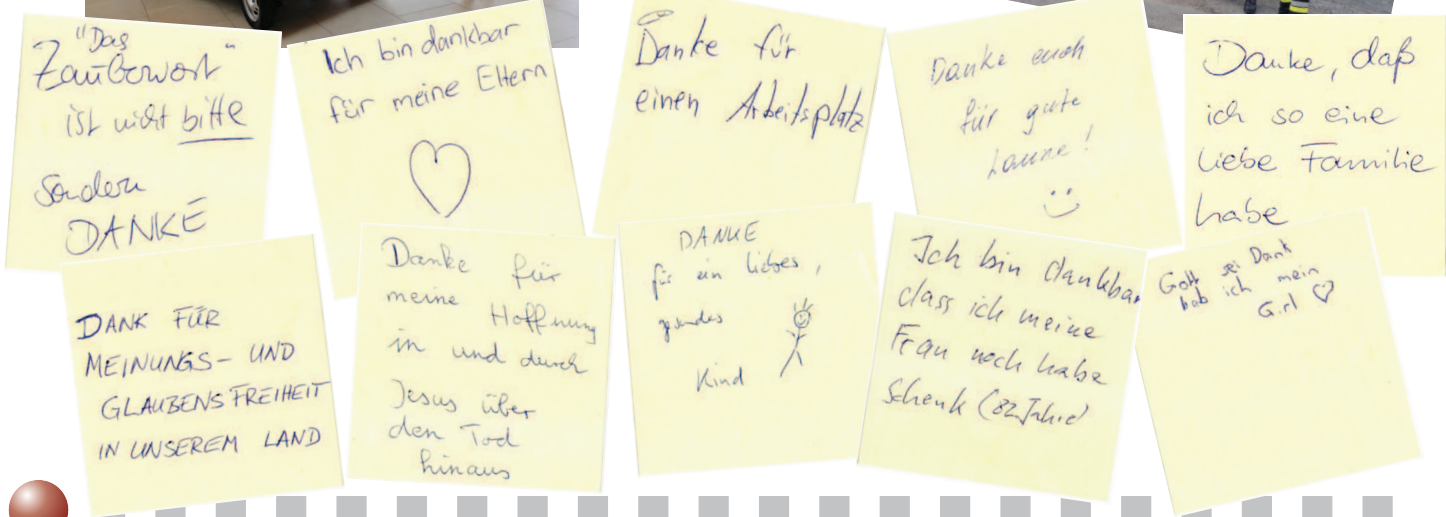 "Das
Zauberwort"
ist nicht bitte
Sondern
DANKE
Ich bin dankbar
für meine Eltern
Danke für
einen Arbeitsplatz
Danke euch
für gute
Laune!
Danke, daß
ich so eine
liebe Familie
habe
DANK FÜR
MEINUNGS- UND
GLAUBENSFREIHEIT
IN UNSEREM LAND
Danke für
meine Hoffnung
in und durch
Jesus über
den Tod
hinaus
DANKE
für ein liebes,
gesundes
Kind
Ich bin dankbar
dass ich meine
Frau noch habe
Schenk (82 Jahre)
Gott sei Dank
hab ich mein
Girl